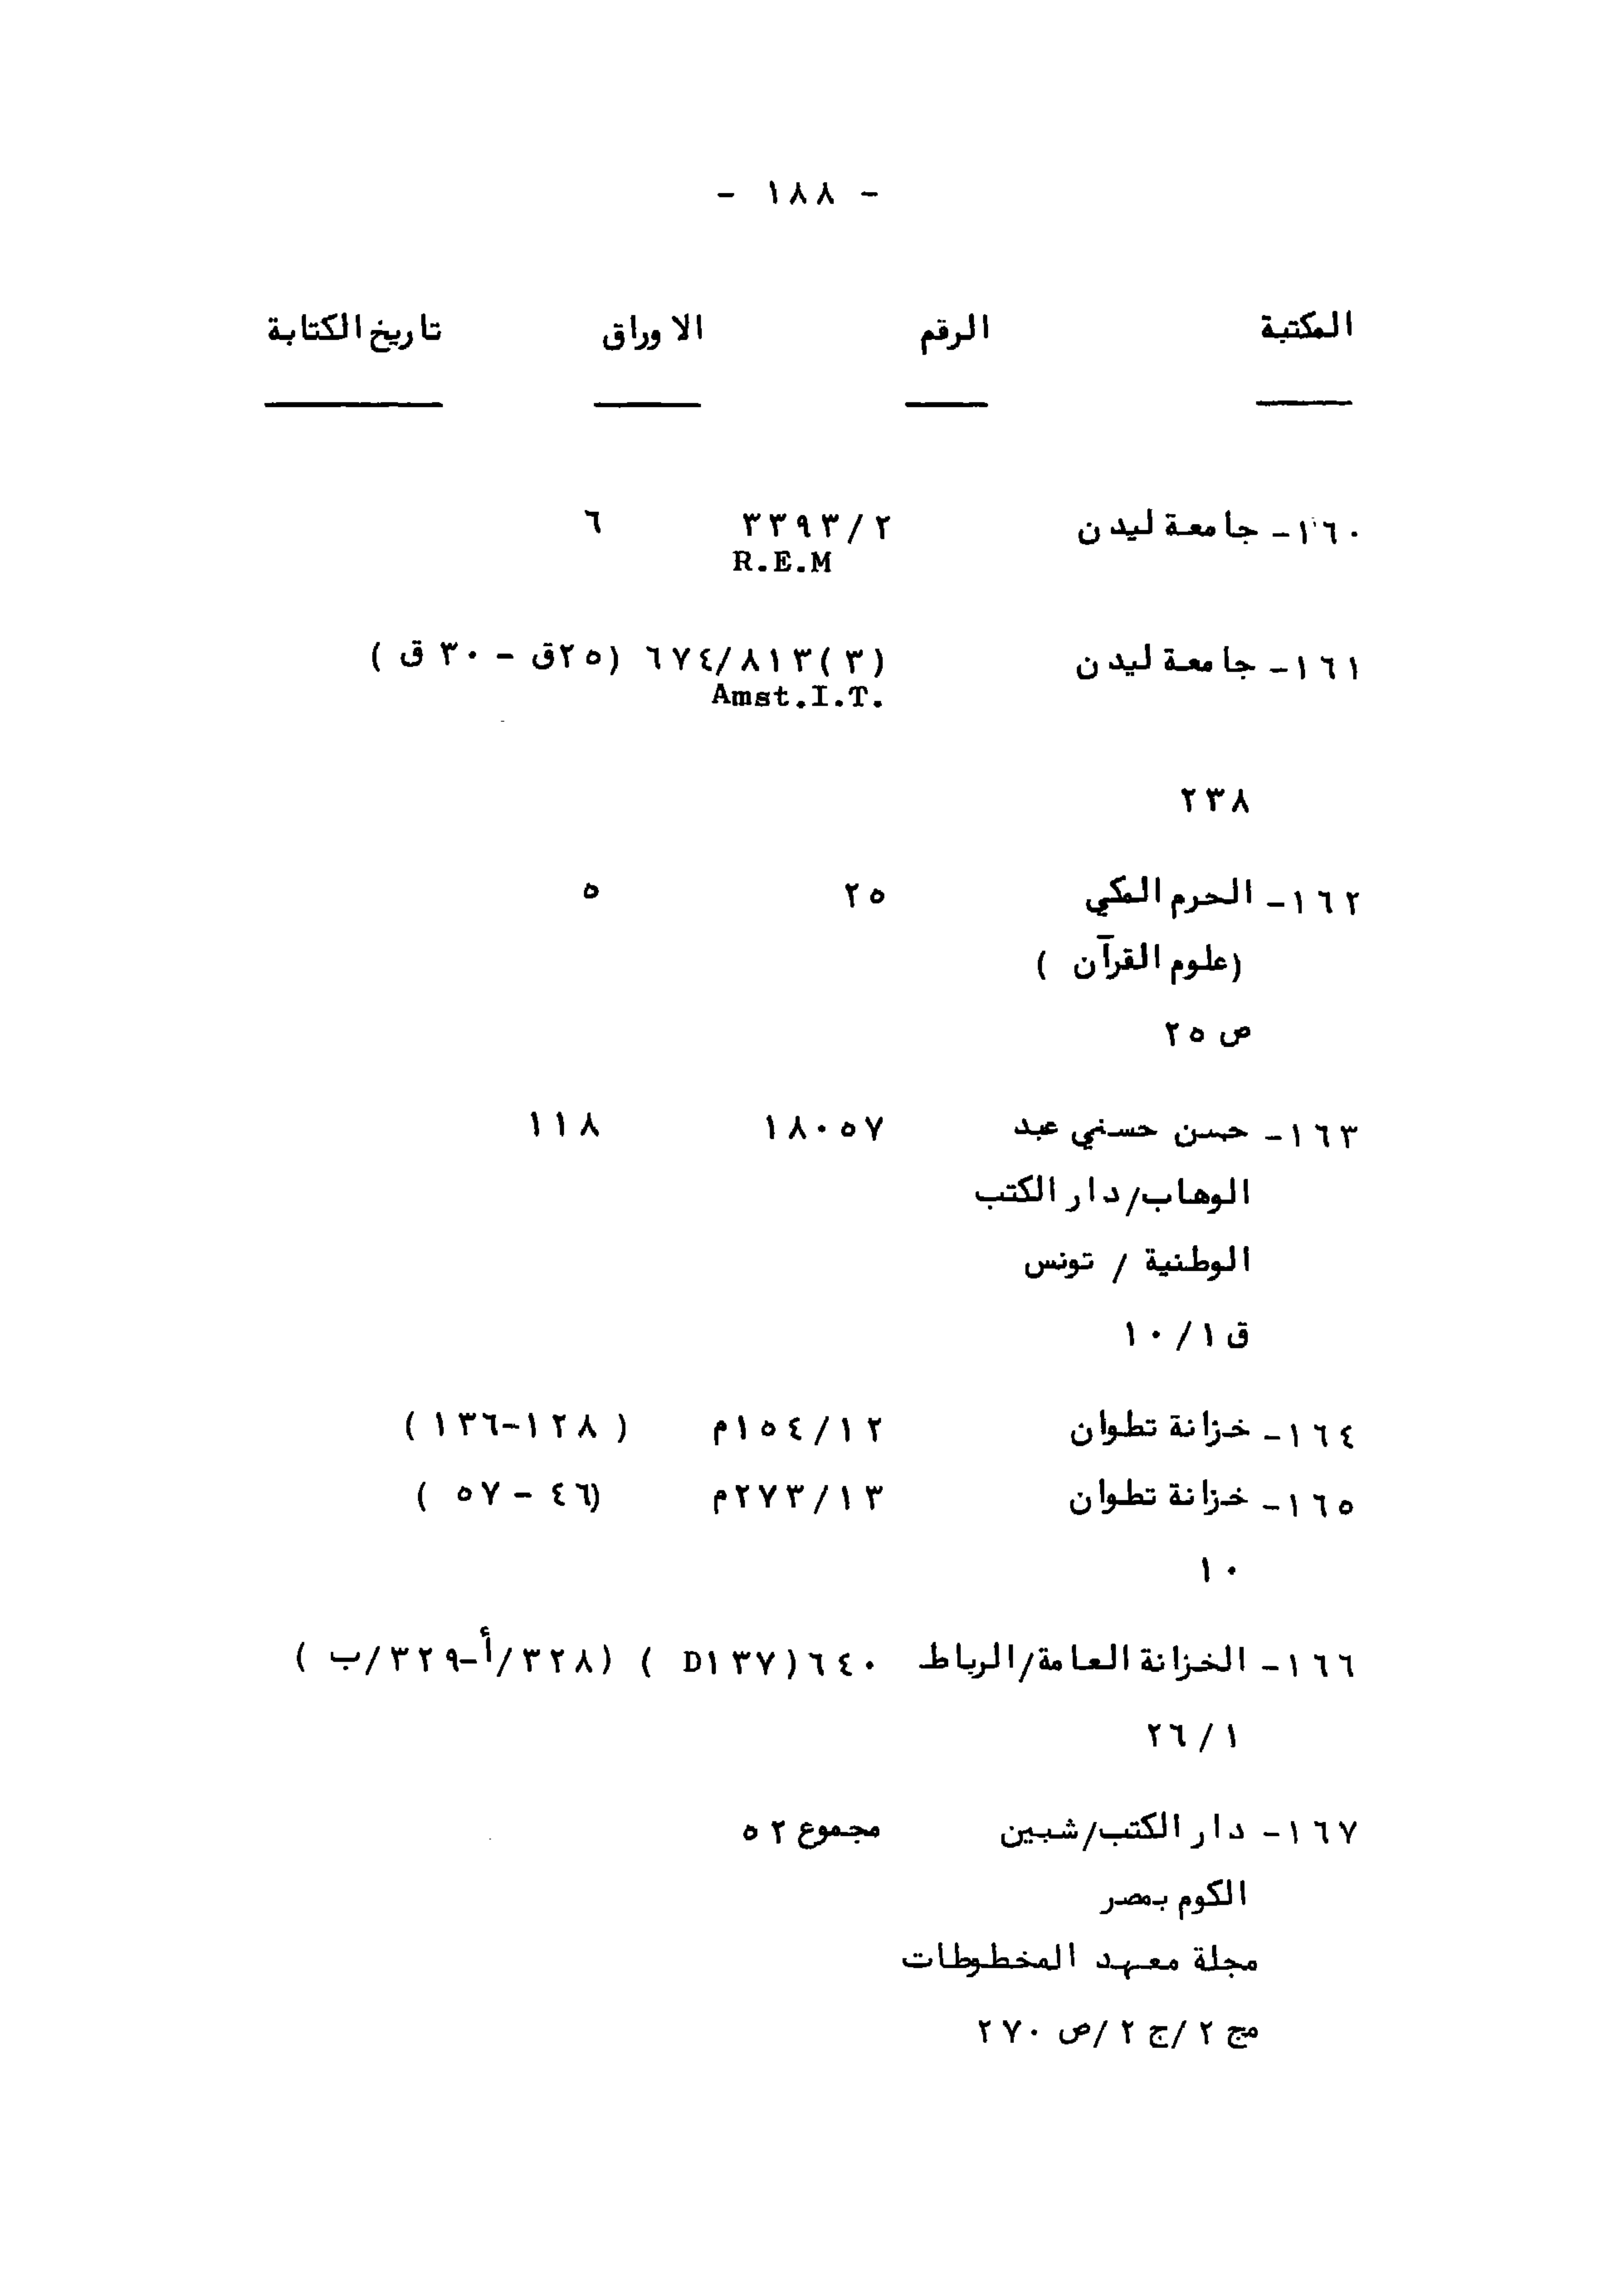 - ١٨٨ -
المكتبة الرقم الاوراق تاريخ الكتابة
١٦٠- جامعة ليدن ٣٣٩٣/٢ ٦
R.E.M
١٦١- جامعة ليدن ٦٧٤/٨١٣(٣) (٢٥ق - ٣٠ ق )
Amst.I.T.
٢٣٨
١٦٢- الحرم المكي ٢٥ ٥
(علوم القرآن )
ص ٢٥
١٦٣- حسن حسني عبد ١٨٠٥٧ ١١٨
الوهاب/دار الكتب
الوطنية / تونس
ق ١٠/١
١٦٤- خزانة تطوان ١٥٤/١٢م ( ١٢٨-١٣٦ )
١٦٥- خزانة تطوان ٢٧٣/١٣م (٤٦ - ٥٧ )
١٠
١٦٦- الخزانة العامة/الرباط ٦٤٠(D١٣٧ ) (٣٢٨/أ-٣٢٩/ب )
٢٦/١
١٦٧- دار الكتب/شبين مجموع ٥٢
الكوم بمصر
مجلة معهد المخطوطات
مج ٢ /ج ٢ /ص ٢٧٠